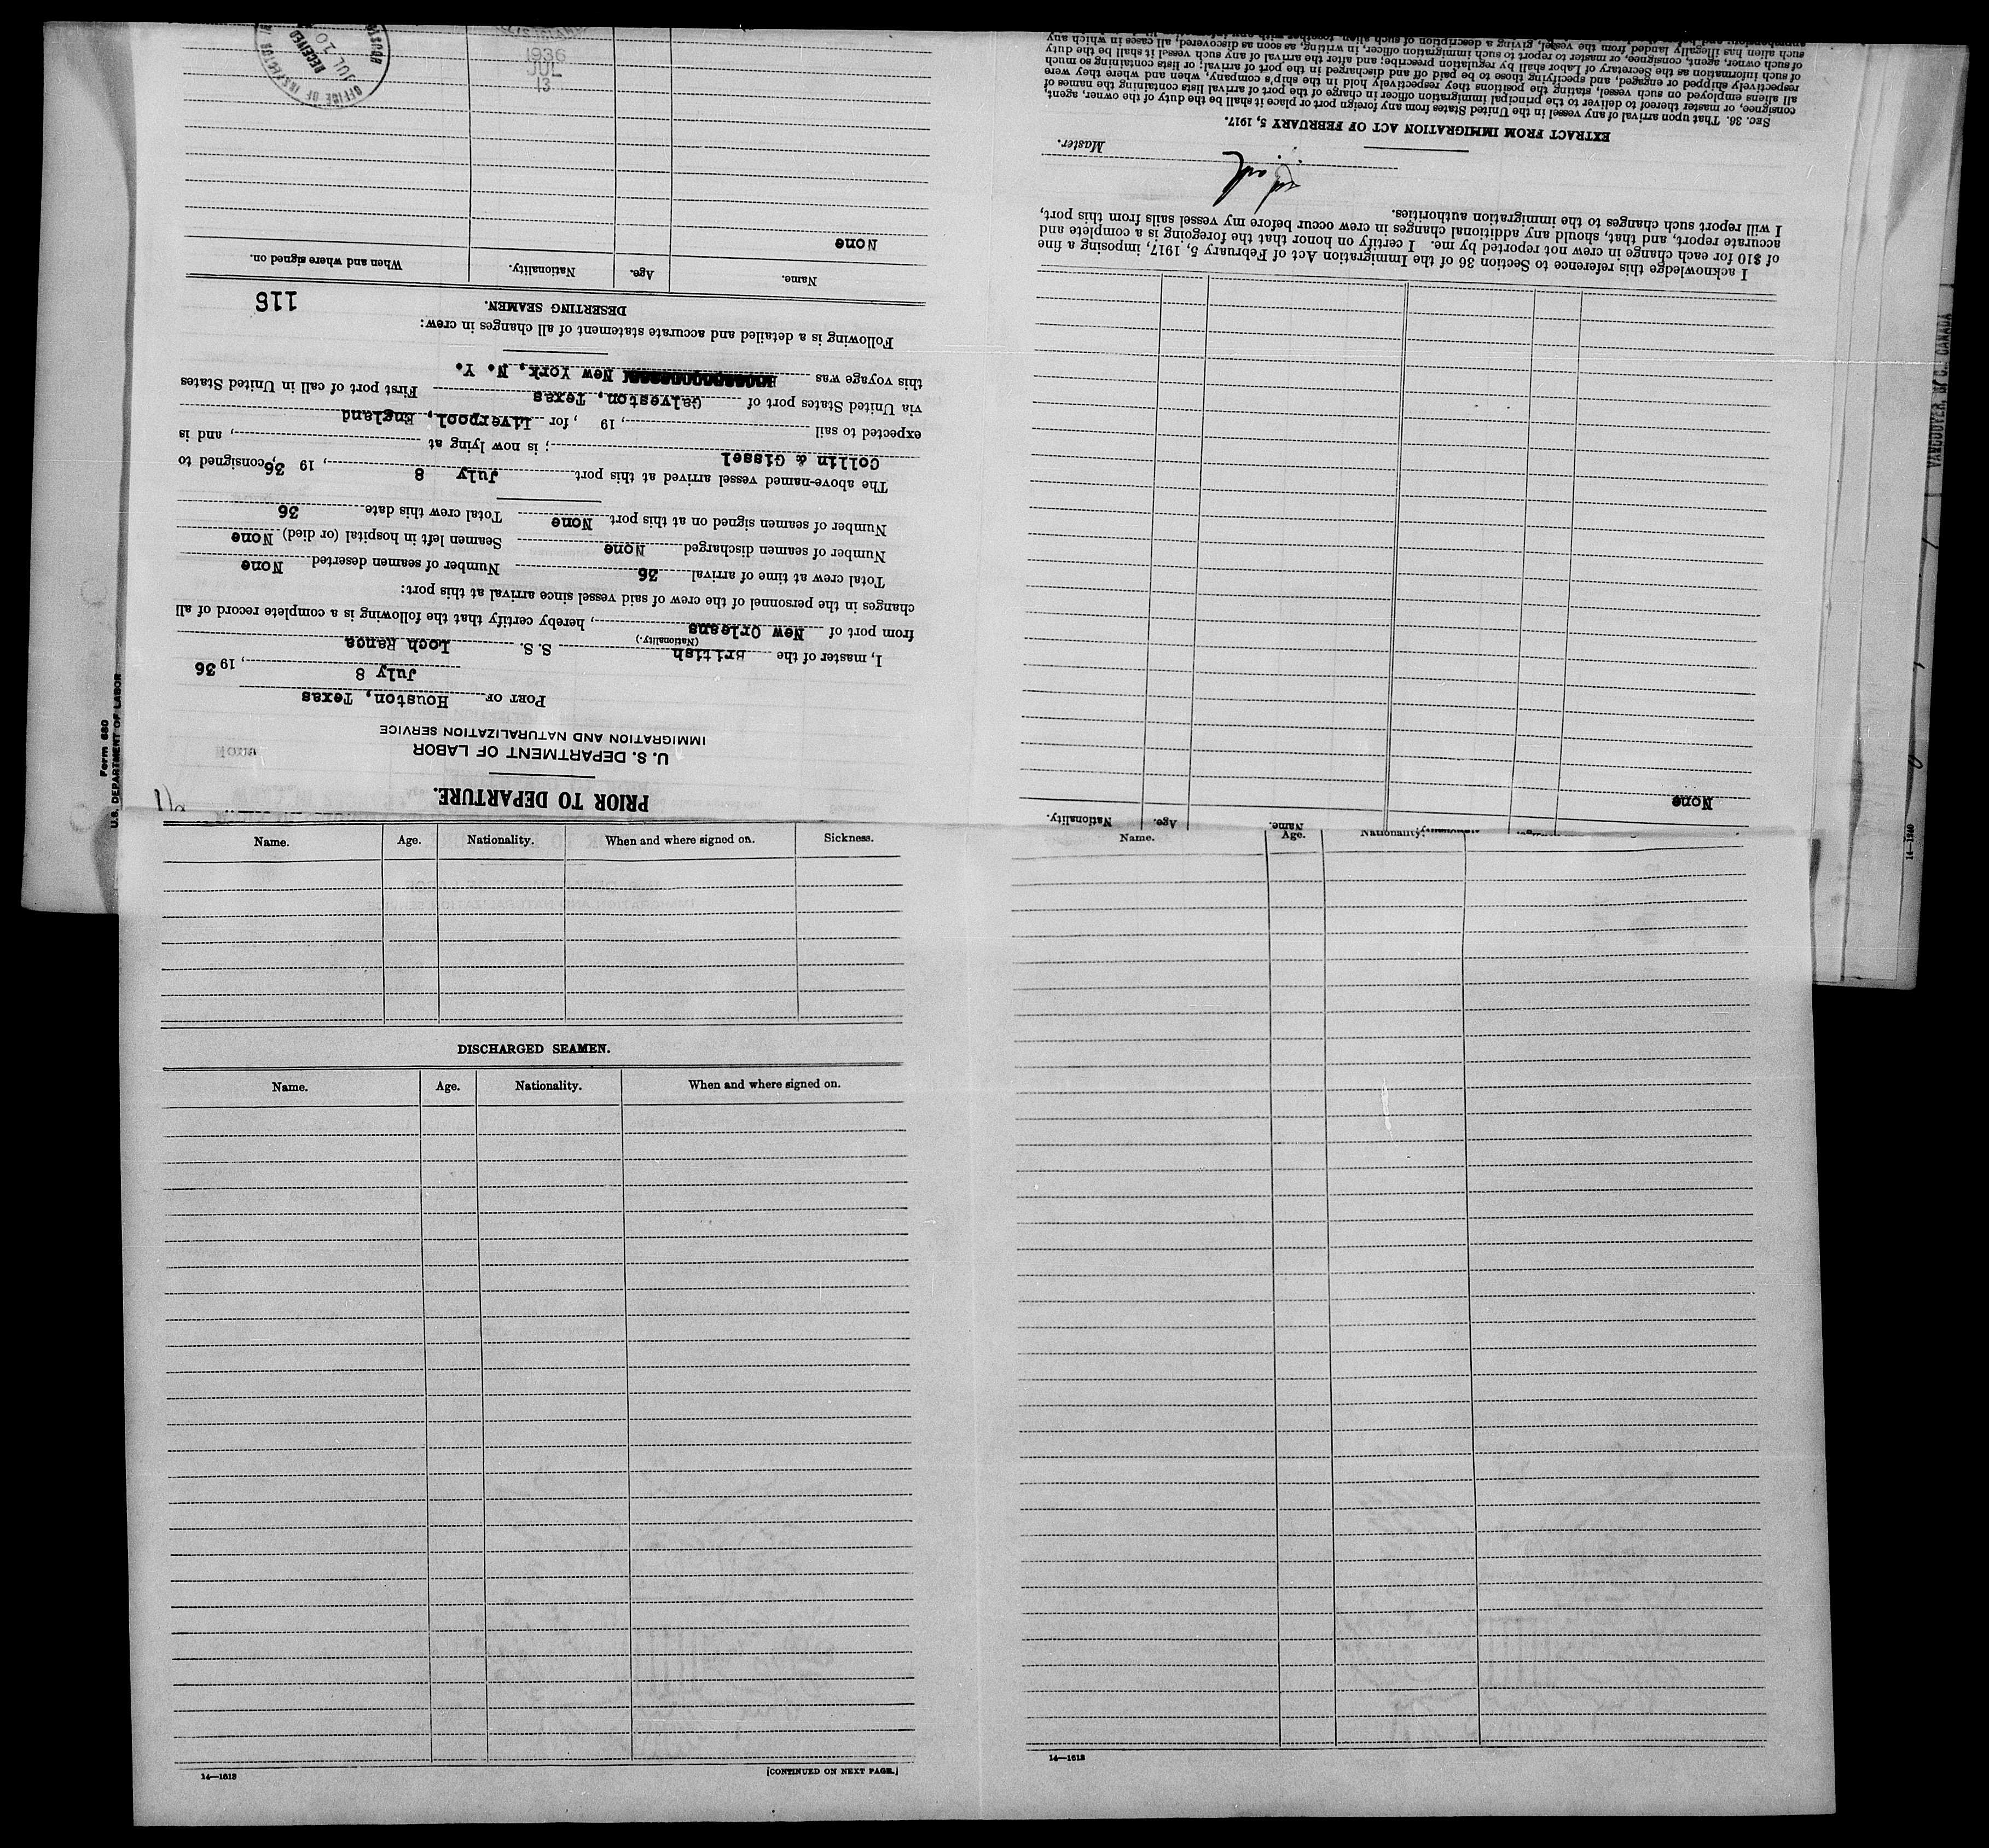 Form 680
U.S. DEPARTMENT OF LABOR
PRIOR TO DEPARTURE.
U. S. DEPARTMENT OF LABOR
IMMIGRATION AND NATURALIZATION SERVICE
PORT OF Houston, Texas
July 8, 1936
I, master of the British S. S. Loch Ranca
(Nationality.)
from port of New Orleans, hereby certify that the following is a complete record of all
changes in the personnel of the crew of said vessel since arrival at this port:
Total crew at time of arrival 36 Number of seamen deserted None
Number of seamen discharged None Seamen left in hospital (or died) None
Number of seamen signed on at this port None Total crew this date 36
The above-named vessel arrived at this port July 8, 1936, consigned to
Collin & Gissel; is now lying at , and is
expected to sail , 19 , for Liverpool, England
via United States port of Galveston, Texas First port of call in United States
this voyage was New York, N. Y.
Following is a detailed and accurate statement of all changes in crew:
DESERTING SEAMEN.
116
Name. Age. Nationality. When and where signed on.
None
1936
JUL
13
OFFICE OF INSPECTOR
RECEIVED
JUL
10
Name. Age. Nationality.
None
I acknowledge this reference to Section 36 of the Immigration Act of February 5, 1917, imposing a fine
of $10 for each change in crew not reported by me. I certify on honor that the foregoing is a complete and
accurate report, and that, should any additional changes in crew occur before my vessel sails from this port,
I will report such changes to the immigration authorities.
Master.
EXTRACT FROM IMMIGRATION ACT OF FEBRUARY 5, 1917.
SEC. 36. That upon arrival of any vessel in the United States from any foreign port or place it shall be the duty of the owner, agent,
consignee, or master thereof to deliver to the principal immigration officer in charge of the port of arrival lists containing the names of
all aliens employed on such vessel, stating the positions they respectively hold in the ship's company, when and where they were
respectively shipped or engaged, and specifying those to be paid off and discharged in the port of arrival; or lists containing so much
of such information as the Secretary of Labor shall by regulation prescribe; and after the arrival of any such vessel it shall be the duty
of such owner, agent, consignee, or master to report to such immigration officer, in writing, as soon as discovered, all cases in which any
such alien has illegally landed from the vessel, giving a description of such alien, together with any information
VANCOUVER, CANADA
14—1240
Name. Age. Nationality. When and where signed on. Sickness.
DISCHARGED SEAMEN.
Name. Age. Nationality. When and where signed on.
14—1613
[CONTINUED ON NEXT PAGE.]
Name. Age. Nationality.
14—1613